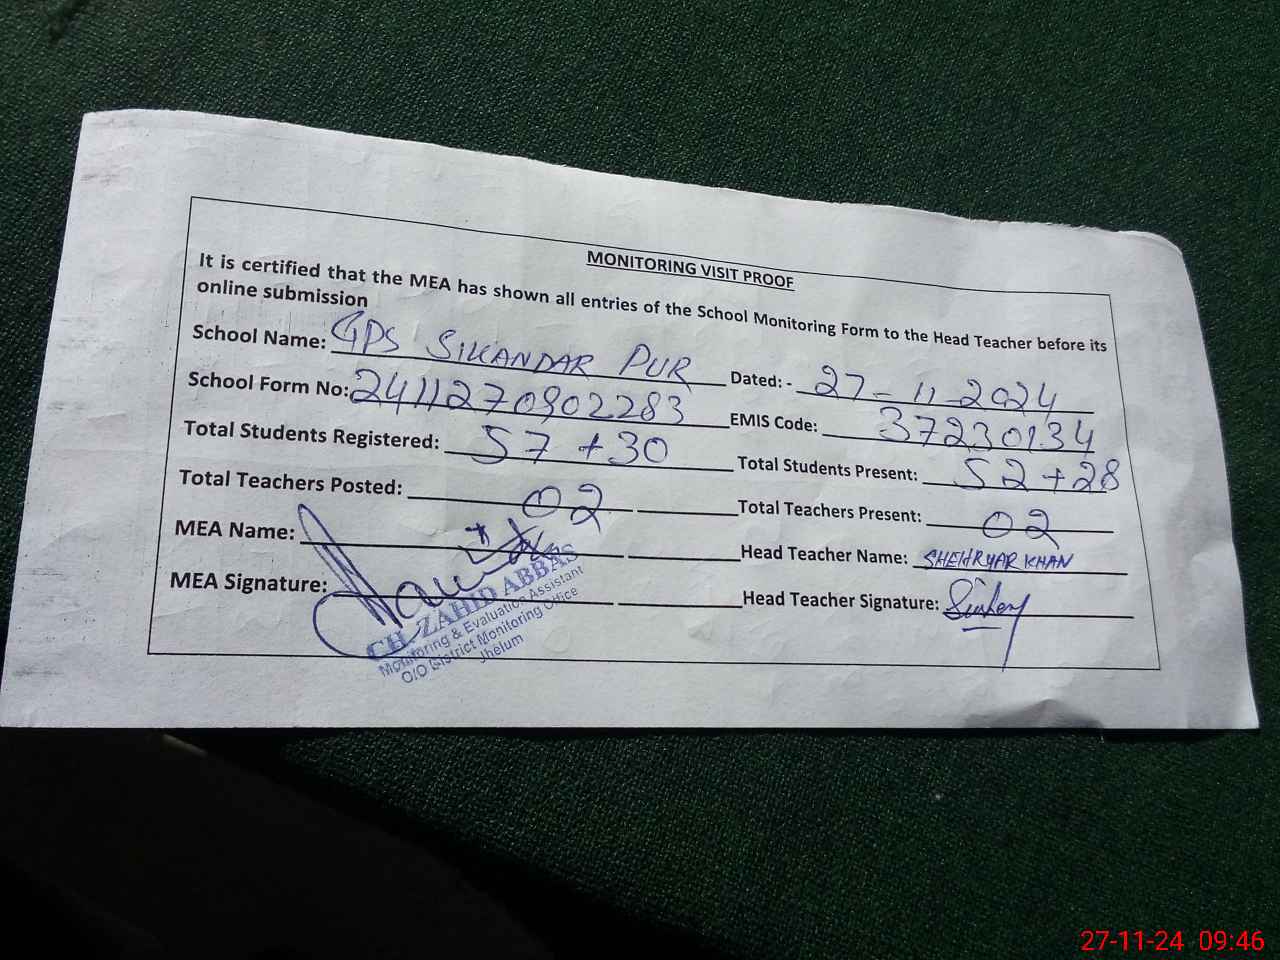 MONITORING VISIT PROOF
It is certified that the MEA has shown all entries of the School Monitoring Form to the Head Teacher before its
online submission
School Name: GPS SIKANDAR PUR Dated: - 27-11-2024
School Form No: 2411270902283 EMIS Code: 37230134
Total Students Registered: 57+30 Total Students Present: 52+28
Total Teachers Posted: 02 Total Teachers Present: 02
MEA Name: Head Teacher Name: SHEHRYAR KHAN
MEA Signature: Head Teacher Signature:
CH. ZAHID ABBAS
Monitoring & Evaluation Assistant
O/O District Monitoring Office
Jhelum
27-11-24 09:46